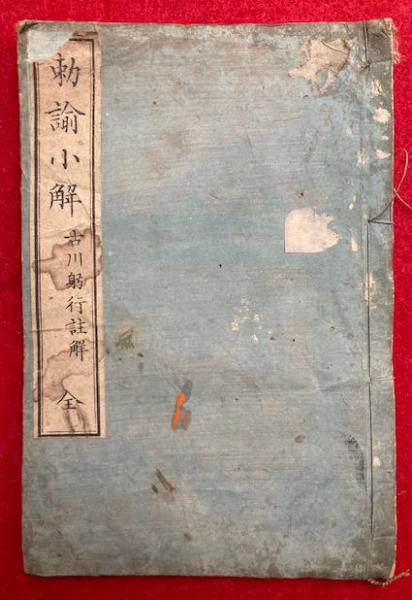 勅諭小解
古川躬行註解
全